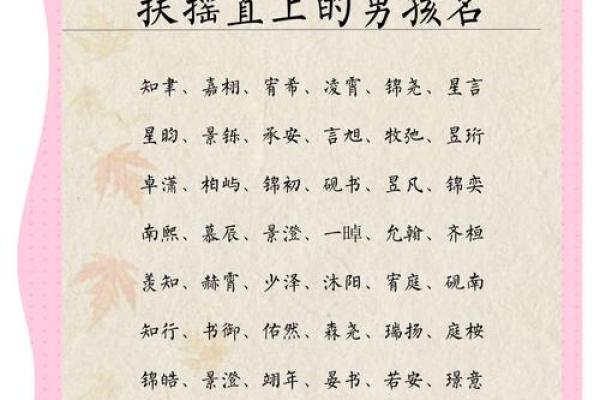 扶摇直上的男孩名
知聿、嘉栩、宥希、凌霄、锦尧、星言
星昀、景铄、承安、言旭、牧弛、昱珩
卓潇、柏屿、锦初、砚书、昱凡、锦奕
南熙、慕辰、景澄、一晫、允翰、齐桓
羡知、赫霄、少泽、沐阳、宥庭、砚南
知行、书御、佑然、森尧、瑞扬、庭桉
锦皓、景澄、翊年、晏书、若安、璟意